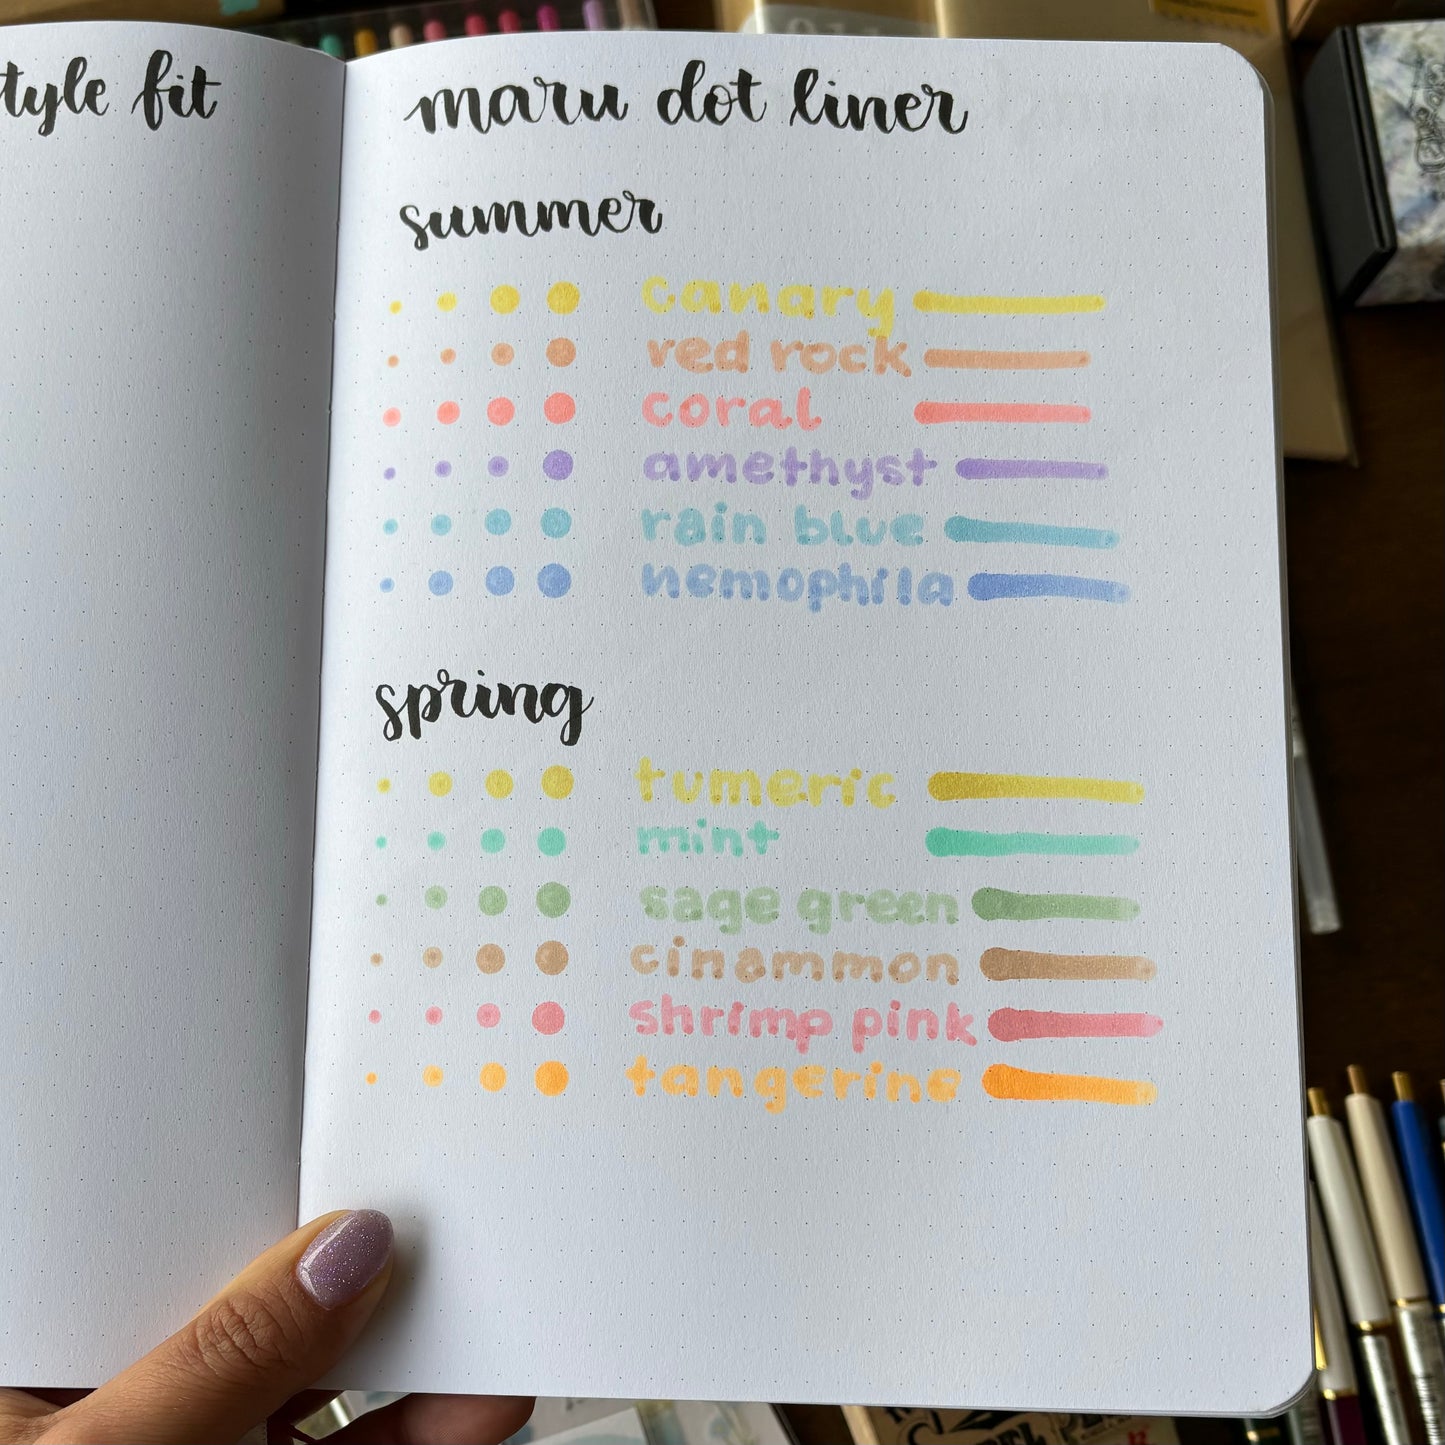 tyle fit
maru dot liner
summer
canary
red rock
coral
amethyst
rain blue
nemophila
spring
tumeric
mint
sage green
cinammon
shrimp pink
tangerine